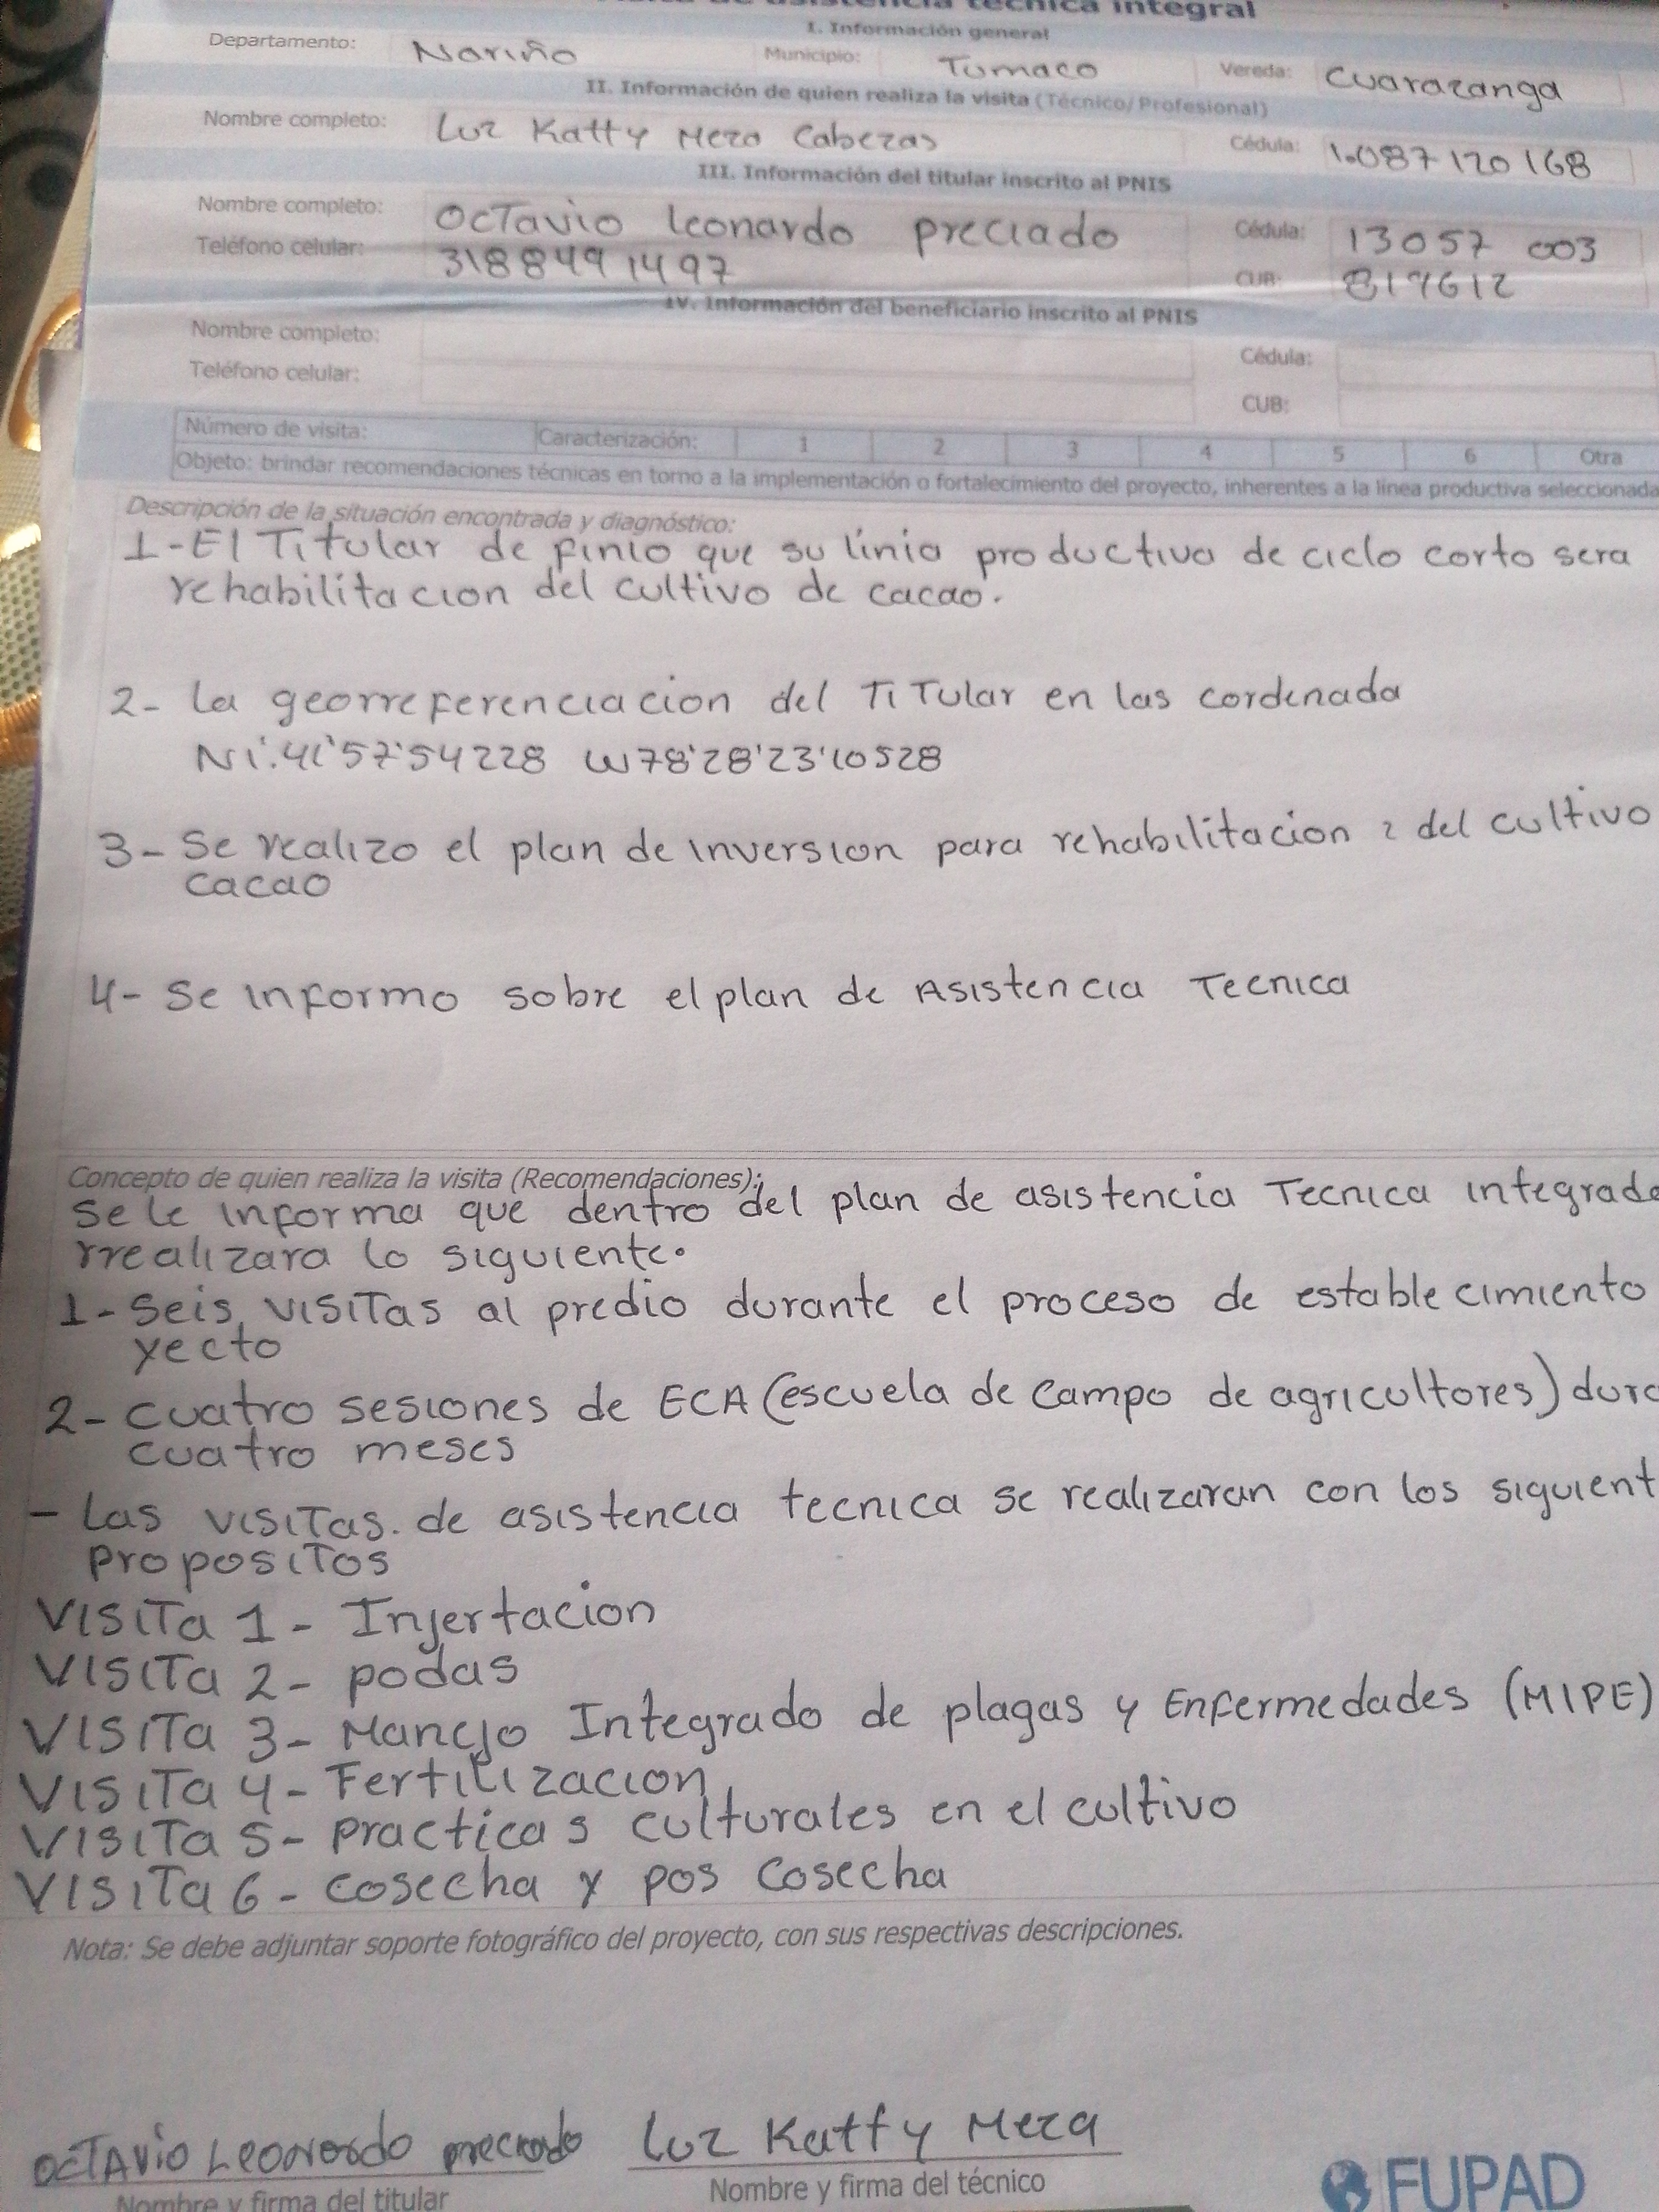 técnica integral
I. Información general
Departamento: Nariño Municipio: Tumaco Vereda: Cuarazanga
II. Información de quien realiza la visita (Técnico/Profesional)
Nombre completo: Luz Katty Meza Cabezas Cédula: 1.087120168
III. Información del titular inscrito al PNIS
Nombre completo: OcTavio leonardo preciado Cédula: 13057 003
Teléfono celular: 3188491497 CUB: 817612
IV. Información del beneficiario inscrito al PNIS
Nombre completo: Cédula:
Teléfono celular: CUB:
Número de visita: Caracterización: 1 2 3 4 5 6 Otra
Objeto: brindar recomendaciones técnicas en torno a la implementación o fortalecimiento del proyecto, inherentes a la línea productiva seleccionada
Descripción de la situación encontrada y diagnóstico:
1-El Titular de finio que su linia productiva de ciclo corto sera
rehabilitacion del cultivo de cacao.
2- la georreferenciacion del TiTular en las cordenada
N1'.41'57'54228 W78'28'23'10528
3- Se realizo el plan de inversion para rehabilitacion del cultivo
cacao
4- Se informo sobre el plan de Asistencia Tecnica
Concepto de quien realiza la visita (Recomendaciones):
Se le informa que dentro del plan de asistencia Tecnica integrad
rrealizara lo siguiente.
1- Seis visiTas al predio durante el proceso de establecimiento
yecto
2- cuatro sesiones de ECA (escuela de campo de agricultores) dura
cuatro meses
- Las visiTas. de asistencia tecnica se realizaran con los siguient
proposiTos
VisiTa 1- Injertacion
VisiTa 2- podas
VisiTa 3- Manejo Integrado de plagas y Enfermedades (MIPE)
VisiTa 4- Fertilizacion
VisiTa 5- practicas culturales en el cultivo
VisiTa 6- cosecha y pos cosecha
Nota: Se debe adjuntar soporte fotográfico del proyecto, con sus respectivas descripciones.
OcTAvio Leonardo preciado Luz Katty Meza
Nombre y firma del titular Nombre y firma del técnico
FUPAD